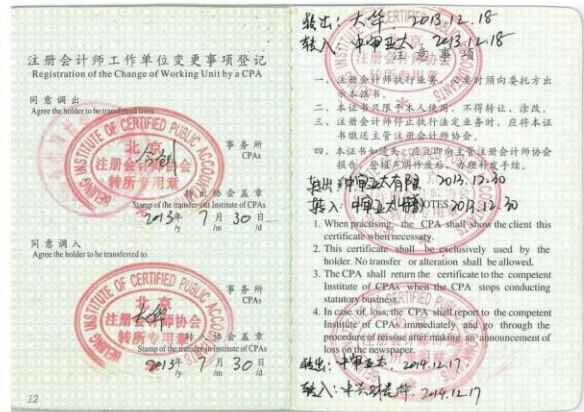 注册会计师工作单位变更事项登记
Registration of the Change of Working Unit by a CPA
同意调出
Agree the holder to be transferred from
北京
注册会计师协会
转所专用章
BEIJING INSTITUTE OF CERTIFIED PUBLIC ACCOUNTANTS
事务所
CPAs
转出协会盖章
Stamp of the transfer-out Institute of CPAs
2013年 7月 30日
/y /m /d
同意调入
Agree the holder to be transferred to
北京
注册会计师协会
转所专用章
BEIJING INSTITUTE OF CERTIFIED PUBLIC ACCOUNTANTS
大华
事务所
CPAs
转入协会盖章
Stamp of the transfer-in Institute of CPAs
2013年 7月 30日
/y /m /d
12
转出: 大华, 2013.12.18
转入: 中审亚太 2013.12.18
注意事项
一、注册会计师执行业务，必要时须向委托方出
示本证书。
二、本证书只限于本人使用，不得转让、涂改。
三、注册会计师停止执行法定业务时，应将本证
书缴还主管注册会计师协会。
四、本证书如遗失，应立即向主管注册会计师协会
报告，登报声明作废后，办理补发手续。
转出: 中审亚太有限 2013.12.30
转入: 中审亚太 2013.12.30
NOTES
1. When practising, the CPA shall show the client this
certificate when necessary.
2. This certificate shall be exclusively used by the
holder. No transfer or alteration shall be allowed.
3. The CPA shall return the certificate to the competent
Institute of CPAs when the CPA stops conducting
statutory business.
4. In case of loss, the CPA shall report to the competent
Institute of CPAs immediately and go through the
procedure of reissue after making an announcement of
loss on the newspaper.
转出: 中审亚太. 2014.12.17.
转入: 中兴财光华. 2014.12.17